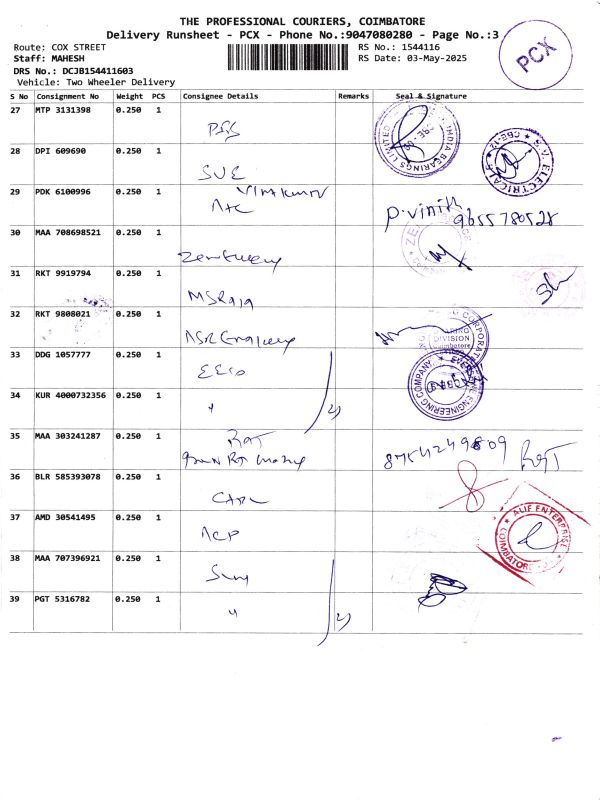 THE PROFESSIONAL COURIERS, COIMBATORE
Delivery Runsheet - PCX - Phone No.:9047080280 - Page No.:3
Route: COX STREET
RS No.: 1544116
Staff: MAHESH
RS Date: 03-May-2025
DRS No.: DCJB154411603
Vehicle: Two Wheeler Delivery
PCX
S No Consignment No Weight PCS Consignee Details Remarks Seal & Signature
27 MTP 3131398 0.250 1
INDIA BEARINGS LIMITED
28 DPI 609690 0.250 1 SUE
S.V. ELECTRICALS CBE-12
29 PDK 6100996 0.250 1
P. Vinith
9655780528
30 MAA 708698521 0.250 1
31 RKT 9919794 0.250 1
32 RKT 9808021 0.250 1
DIVISION
Coimbatore
33 DDG 1057777 0.250 1
ENGINEERING COMPANY
34 KUR 4000732356 0.250 1 "
2)
35 MAA 303241287 0.250 1 RGT
8754249809 RGT
36 BLR 585393078 0.250 1
37 AMD 30541495 0.250 1 ACP
ALIF ENTERPRISE
COIMBATORE
38 MAA 707396921 0.250 1
39 PGT 5316782 0.250 1 "
2)